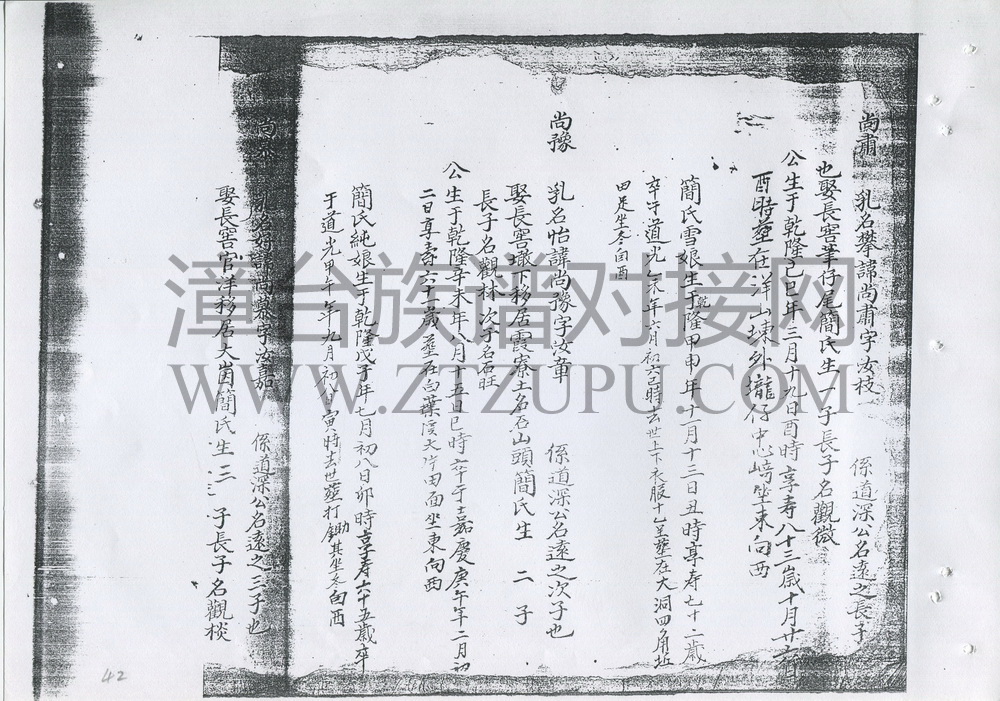 尚肅 乳名攀諱尚肅字汝枝 係道深公名遠之長子
也娶長窖葦仔尾簡氏生一子長子名觀微
公生于乾隆己巳年三月十九日酉時享寿八十三歲十月廿七
酉時塟在洋山埬外壠仔中心崎坐東向西
簡氏雪娘生于乾隆甲申年十一月十三日丑時享寿七十二歲
卒于道光乙未年六月初六巳時去世上下衣服十乙呈塟在大洞四角坵
田足坐东向酉
尚豫 乳名怡諱尚豫字汝章 係道深公名遠之次子也
娶長窖墩下移居霞寮土名石山頭簡氏生 二 子
長子名觀林次子名石旺
公生于乾隆辛未年八月十五日巳時卒于嘉慶庚午年二月初
二日享寿六十歲塟在白葉溪大岸田面坐東向西
簡氏純娘生于乾隆戊子年七月初八日卯時享寿六十五歲卒
于道光甲午年九月初八日寅時去世塟打鋤其坐东向酉
尚恭 乳名好諱尚恭字汝嘉 係道深公名遠之三子也
娶長窖官洋移居大崗簡氏生三子長子名觀棪
漳台族譜对接网
WWW.ZTZUPU.COM
42